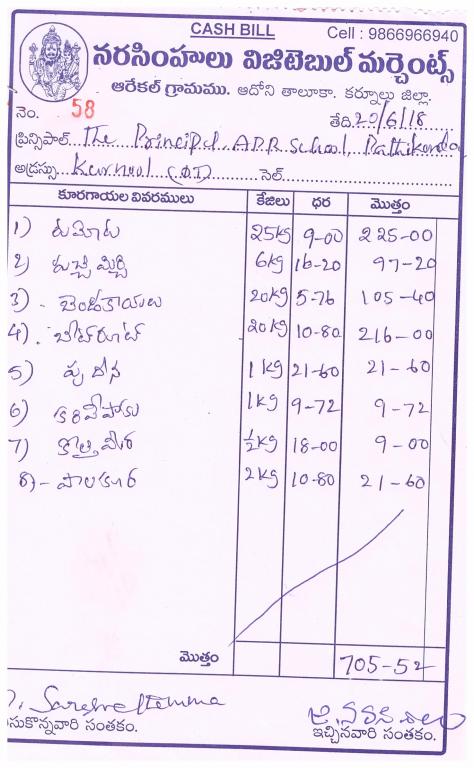 CASH BILL
Cell : 9866966940
నరసింహలు విజిటెబుల్ మర్చెంట్స్
ఆరేకల్ గ్రామము. ఆదోని తాలూకా. కర్నూలు జిల్లా.
నెం. 58 తేది. 20/6/18
ప్రిన్సిపాల్... The Principal, A.P.R School, Pathikonda
అడ్రస్సు Kurnool (DT) సెల్
కూరగాయల వివరములు కేజీలు ధర మొత్తం
1) టమోట 25kg 9-00 225-00
2) పచ్చి మిర్చి 6kg 16-20 97-20
3) బెండకాయలు 20kg 5-76 105-40
4) బీట్‌రూట్ 20kg 10-80 216-00
5) పుదీన 1kg 21-60 21-60
6) కరివేపాకు 1kg 9-72 9-72
7) కొత్తిమీర ½kg 18-00 9-00
8) పాలకూర 2kg 10-80 21-60
మొత్తం 705-52
సుకొన్నవారి సంతకం. ఇచ్చినవారి సంతకం.